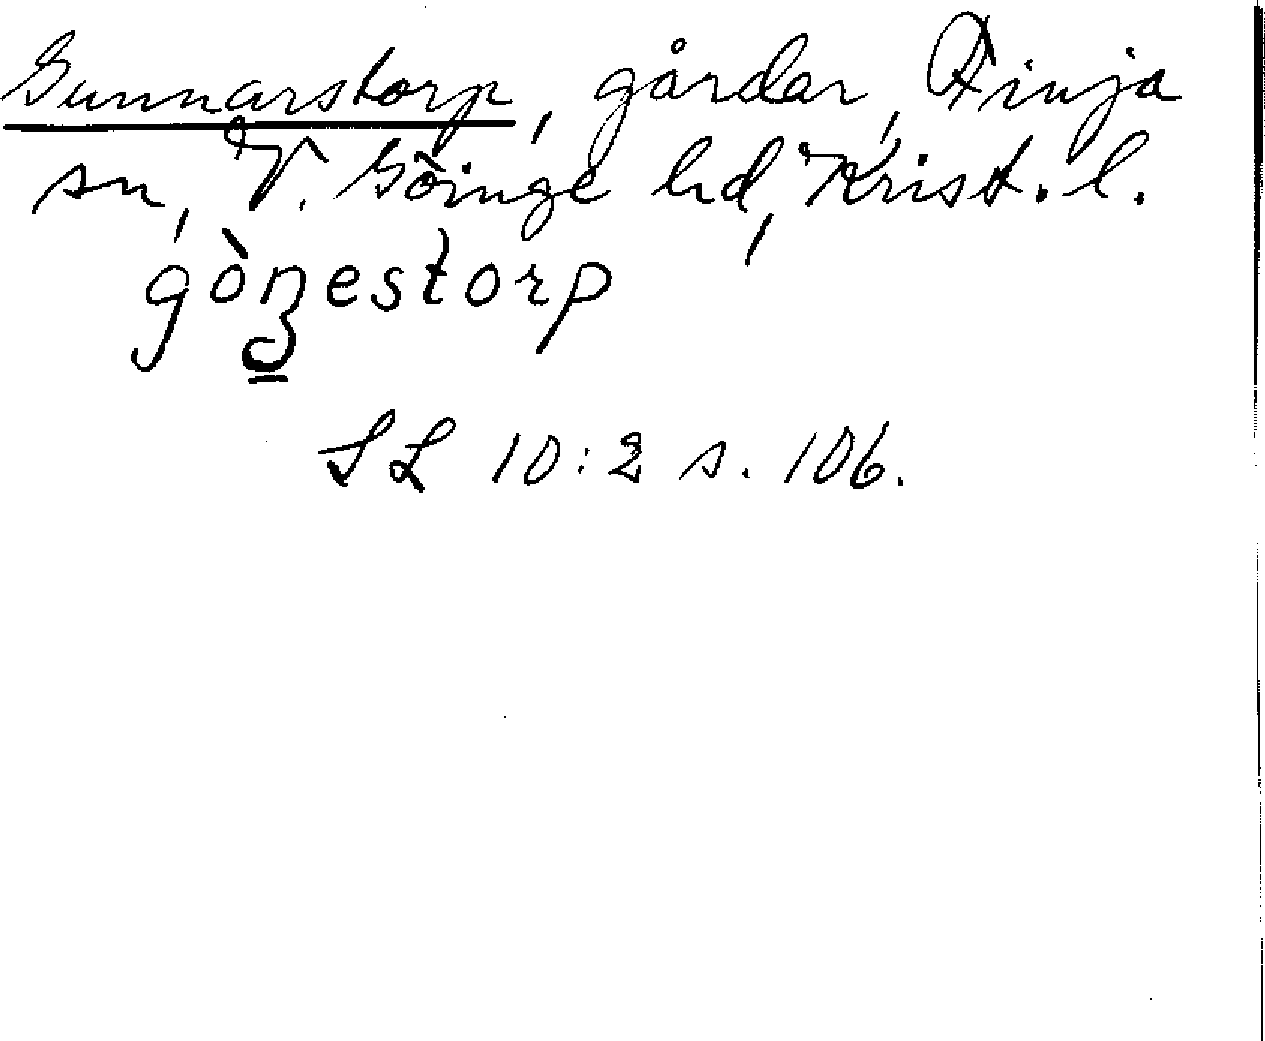 Gunnarstorp, gårdar, Finja
sn, V. Göinge hd, Krist. l.
SL 10:2 s. 106.